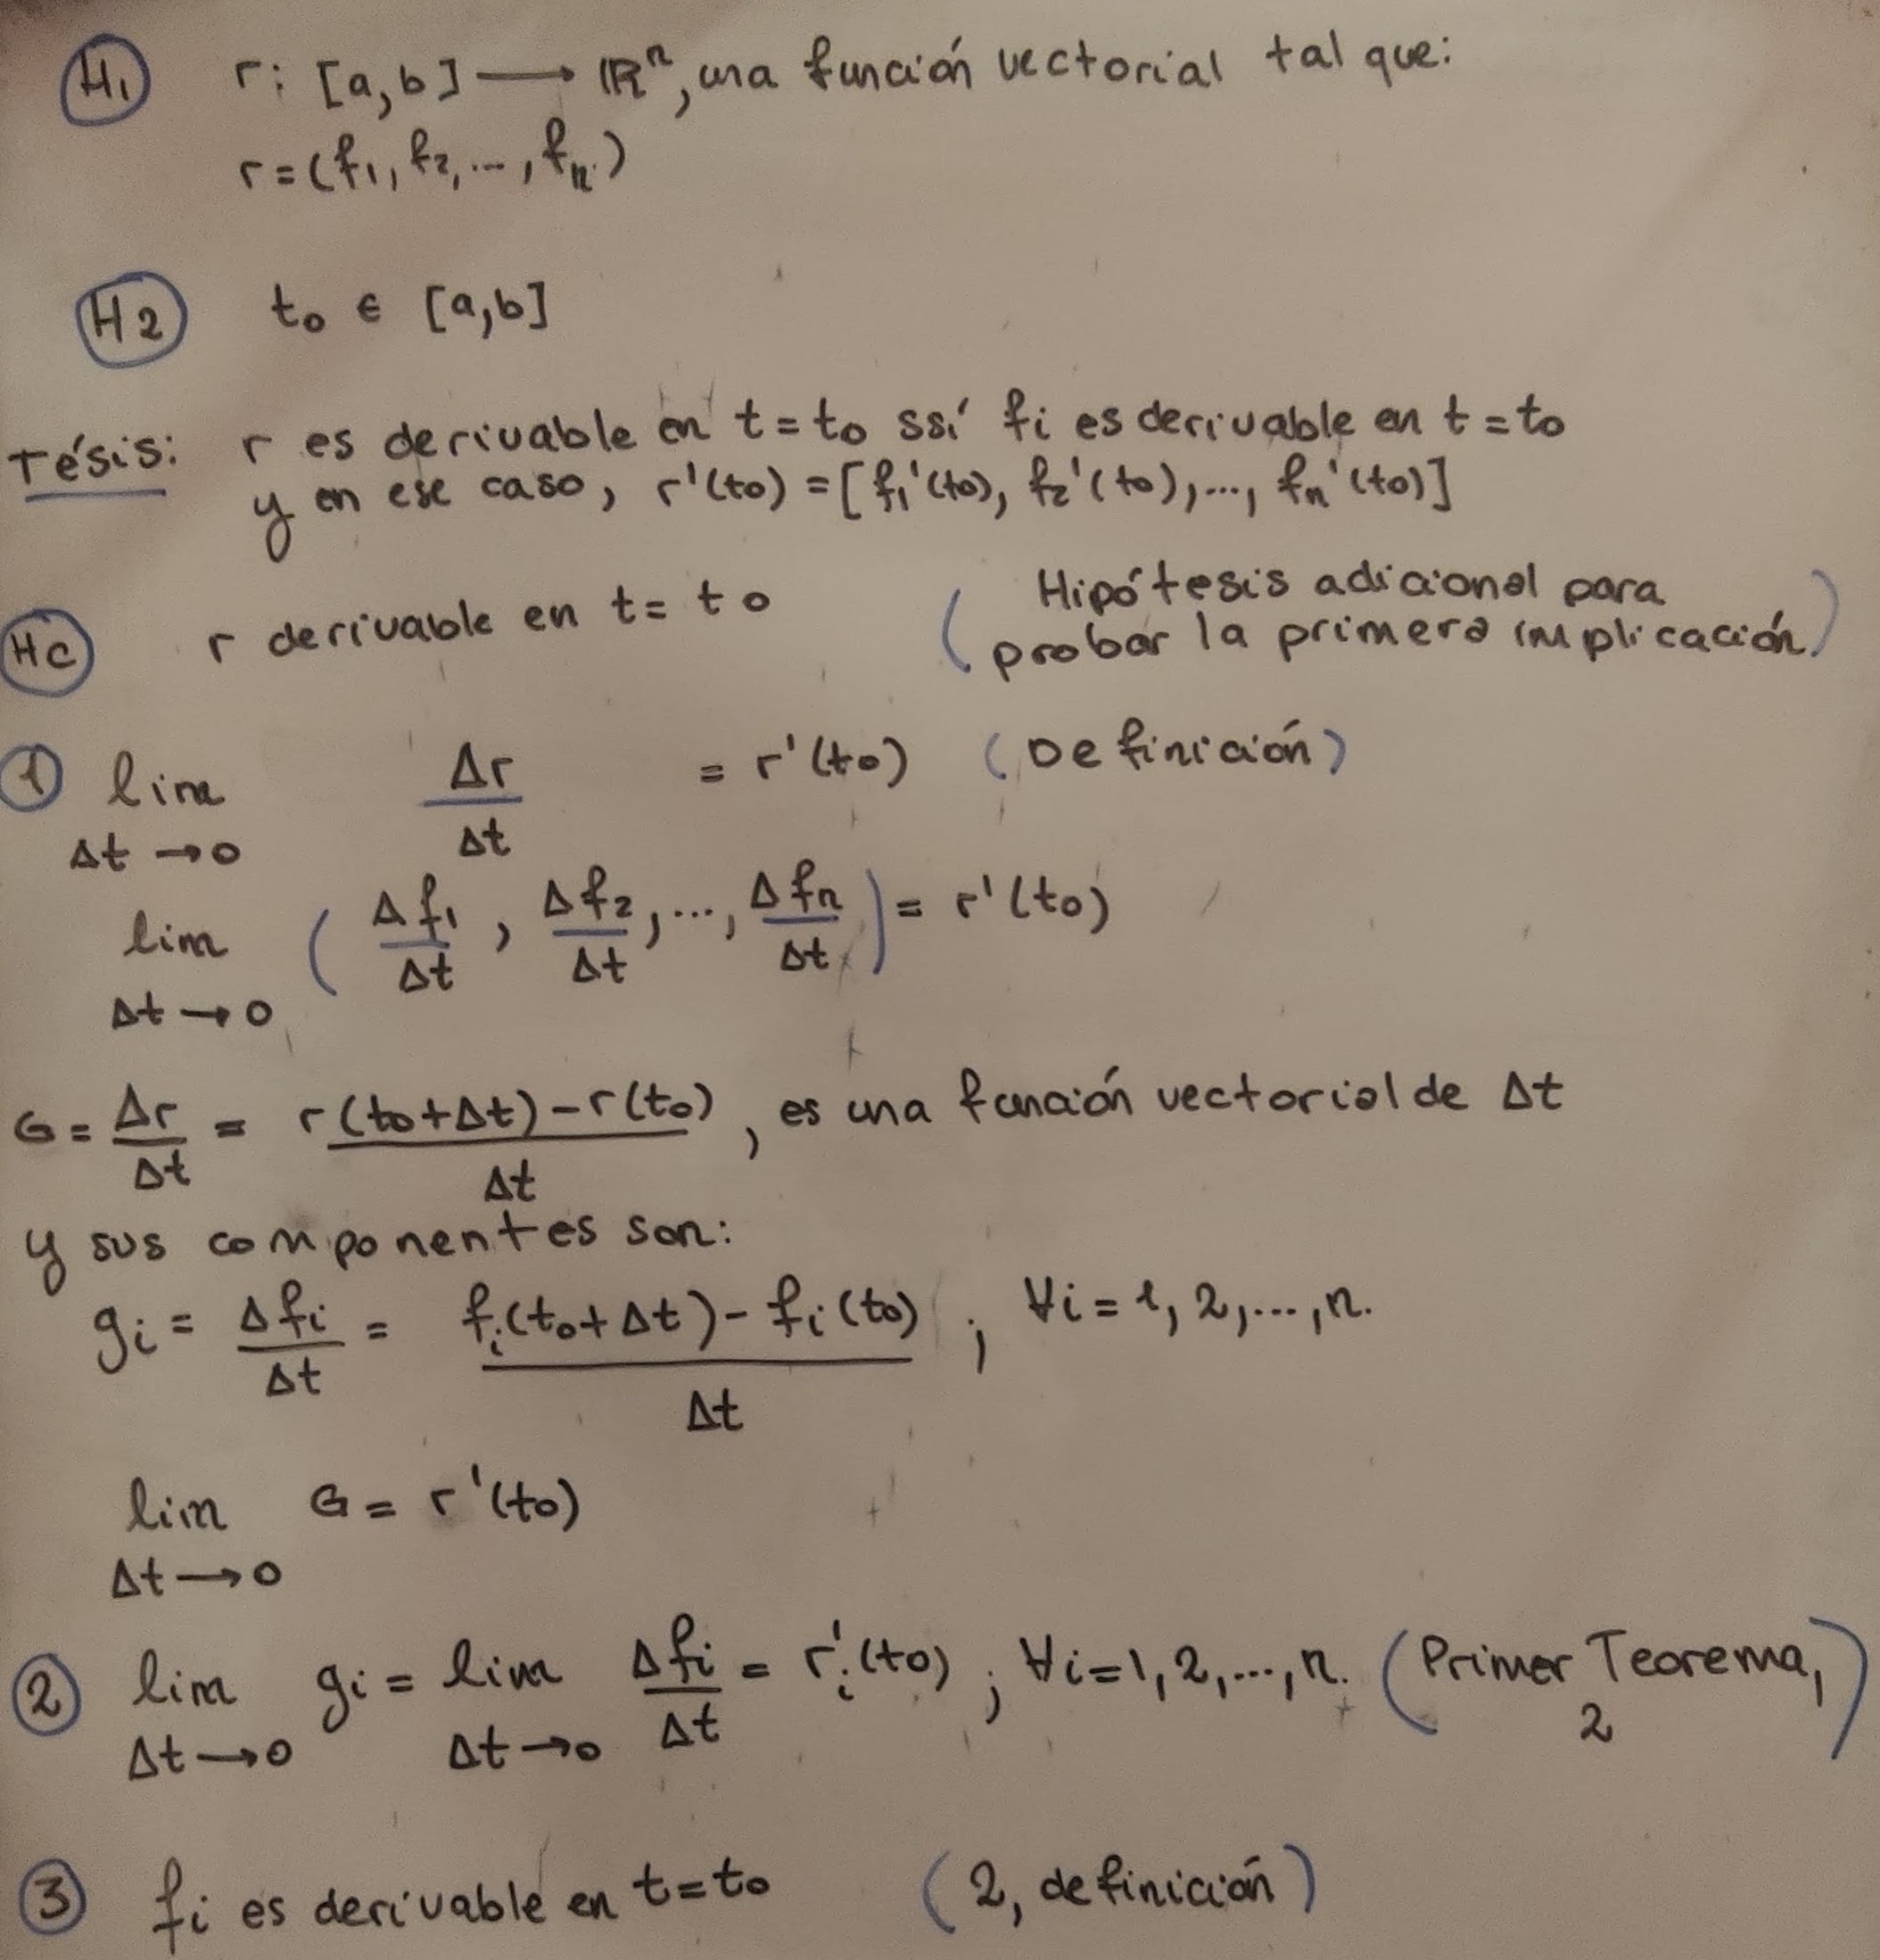 H1 r: [a,b] ⟶ ℝⁿ, una función vectorial tal que:
r=(f₁, f₂, ..., fₙ)
H2 t₀ ∈ [a,b]
Tésis: r es derivable en t=t₀ ssí fi es derivable en t=t₀
y en ese caso, r'(t₀) = [f₁'(t₀), f₂'(t₀), ..., fₙ'(t₀)]
Hc r derivable en t= t₀ (Hipótesis adicional para
probar la primera implicación)
1 lim Δr/Δt = r'(t₀) (Definición)
Δt → 0
lim (Δf₁/Δt, Δf₂/Δt, ..., Δfₙ/Δt) = r'(t₀)
Δt → 0
G = Δr/Δt = r(t₀+Δt)-r(t₀)/Δt, es una función vectorial de Δt
y sus componentes son:
gi = Δfi/Δt = fi(t₀+Δt)-fi(t₀)/Δt ; ∀i=1,2,...,n.
lim G = r'(t₀)
Δt → 0
2 lim gi = lim Δfi/Δt = r'i(t₀) ; ∀i=1,2,...,n. (Primer Teorema, 2)
Δt → 0 Δt → 0
3 fi es derivable en t=t₀ (2, definición)